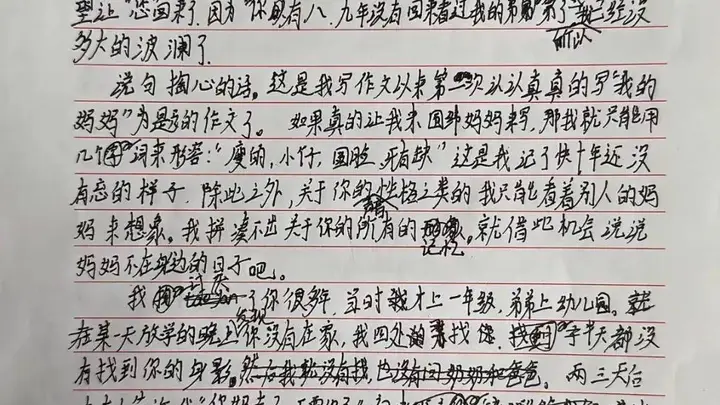 望让"您回来了，因为"你只有八、九年没有回来看过我的弟弟了所以我已经没
多大的波澜了
说句掏心的话。这是我写作文以来第一次认认真真的写"我的
妈妈"为题的作文了。如果真的让我来围绕妈妈来写，那我就只能用
几个词来形容："瘦的，小仔，圆脸，牙有缺"这是我记了快十年还没
有忘的样子，除此之外，关于你的性格之类的我只能看着别人的妈
妈来想象。我拼凑不出关于你的所有的记忆。就借此机会说说
妈妈不在身边的日子吧。
我讨厌了你很多年，当时我才上一年级，弟弟上幼儿园。就
在某一天放学的晚上发现你没有在家，我四处的寻找您，找了半天都没
有找到你的身影。然后我就没有找，也没有问奶奶和爸爸。两三天后